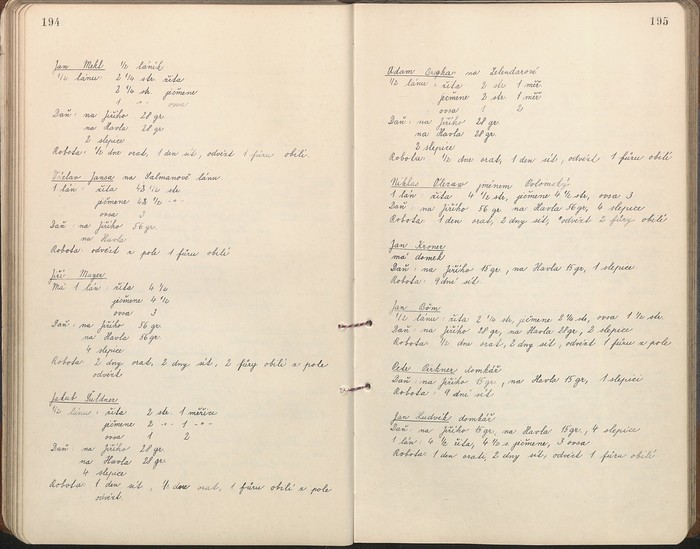 194
Jan Mekl ½ láník
½ lánu: 2 ¼ str. žita
2 ¼ str. ječmene
1 -"- ovsa
Daň: na Jiřího 28 gr.
na Havla 28 gr.
2 slepice
Robota: ½ dne orat, 1 den sít, odvézt 1 fůru obilí.
Václav Jansa na Salmanově lánu.
1 lán: žita 4 ½ str
ječmene 4 ½ -"-
ovsa 3
Daň: na Jiřího 56 gr.
na Havla
Robota: odvézt z pole 1 fůru obilí
Jiří Mayer
Má 1 lán: žita 4 ½
ječmene 4 ½
ovsa 3
Daň: na Jiřího 56 gr
na Havla 56 gr.
4 slepice
Robota: 2 dny orat, 2 dny sít, 2 fůry obilí z pole
odvézt
Jakub
½ lánu: žita 2 str. 1 měřice
ječmene 2 -"- 1 -"-
ovsa 1 2
Daň: na Jiřího 28 gr.
na Havla 28 gr.
4 slepice
Robota: 1 den sít, ½ dne orat, 1 fůru obilí z pole
odvézt.
195
Adam na
½ lánu: žita 2 str. 1 měř
ječmene 2 str. 1 měř
ovsa 1 2
Daň: na Jiřího 28 gr.
na Havla 28 gr.
2 slepice
Robota: ½ dne orat, 1 den sít, odvézt 1 fůru obilí
Niklas jménem
1 lán: žita 4 ½ str, ječmene 4 ½ str, ovsa 3
Daň: na Jiřího 56 gr na Havla 56 gr, 4 slepice
Robota: 1 den orat, 2 dny sít, odvézt 2 fůry obilí
Jan Kroner
má domek
Daň: na Jiřího 15 gr, na Havla 15 gr, 1 slepice
Robota: 9 dní sít.
Jan Böm
½ lánu: žita 2 ¼ str, ječmene 2 ¼ str, ovsa 1 ½ str.
Daň: na Jiřího 28 gr, na Havla 28 gr, 2 slepice
Robota: ½ dne orat, 2 dny sít, odvézt 1 fůru z pole
domkář
Daň: na Jiřího 15 gr, na Havla 15 gr, 1 slepici
Robota: 9 dní sít
Jan Ludvík domkář
Daň: na Jiřího 15 gr, na Havla 15 gr, 4 slepice
1 lán: 4 ½ žita, 4 ½ s ječmene, 3 ovsa
Robota: 1 den orat, 2 dny sít, odvézt 1 fůru obilí